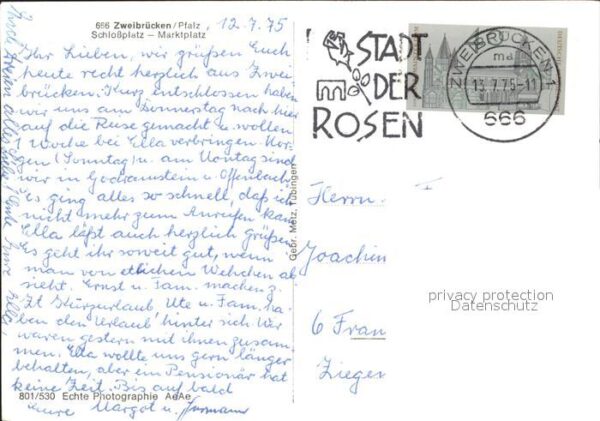 666 Zweibrücken/Pfalz
Schloßplatz — Marktplatz
12.7.75
Ihr Lieben, wir grüßen Euch
heute recht herzlich aus Zwei
brücken. Kurz entschlossen haben
wir uns am Donnerstag nach hier
auf die Reise gemacht u. wollen
1 Woche bei Ella verbringen. Mor-
gen (Sonntag) u. am Montag sind
wir in Godramstein u. Offenbach.
Es ging alles so schnell, daß ich
nicht mehr zum Anrufen kam.
Ella läßt auch herzlich grüßen.
Es geht ihr soweit gut, wenn
man von etlichen Wehchen ab
sieht. Ernst u. Fam. machen z.
Zt. Kurzurlaub. Ute u. Fam. ha-
ben den Urlaub hinter sich. Wir
waren gestern mit ihnen zusam-
men. Ella wollte uns gern länger
behalten, aber ein Pensionär hat
keine Zeit. Bis auf bald
Eure Margot u. Hermann
801/530 Echte Photographie AeAe
alles Gute
Gebr. Metz, Tübingen
STADT
DER
ROSEN
ZWEIBRÜCKEN 1
ma
13.7.75-11
666
Herrn
Joachim
privacy protection
Datenschutz
6 Fran
Ziegel